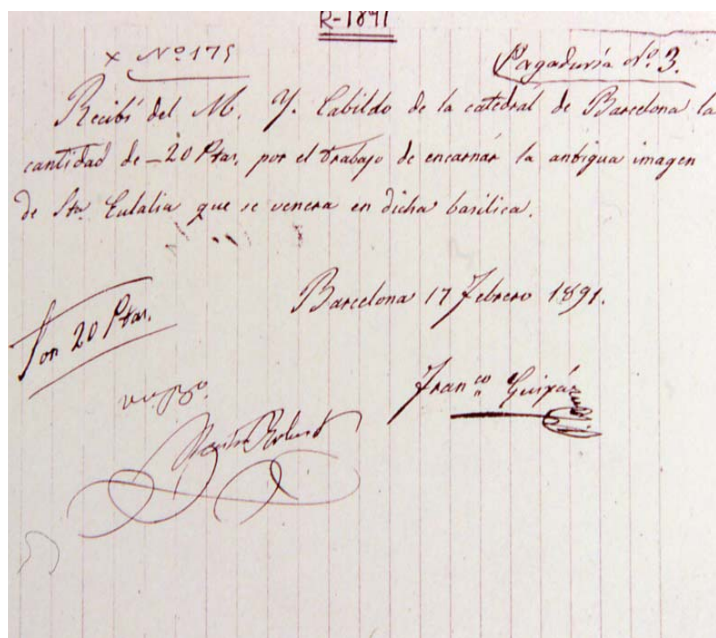 R-1891
x Nº 175
Pagaduría Nº 3.
Recibí del M. Y. Cabildo de la catedrál de Barcelona la
cantidad de -20 Ptas, por el trabajo de encarnár la antigua imagen
de Sta Eulalia que se venera en dicha basilica.
Barcelona 17 Febrero 1891.
Son 20 Ptas.
Franco Guixá